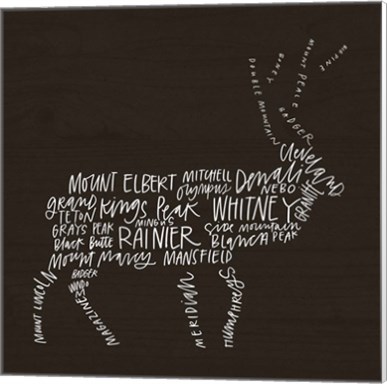 ALPINE
MOUNT PEALE
BONEY
DOUBLE MOUNTAIN
BADGER
Cleveland
GRANITE
MOUNT ELBERT MITCHELL Denali
olympus NEBO
grand Kings Peak WHITNEY
TETON MINGUS
GRAYS PEAK RAINIER Six mountain
Black Butte Blanca PEAK
Mount Marcy MANSFIELD
BADGER
MOUNT LINCOLN
MAGAZINE
MERIDIAN
Humphreys